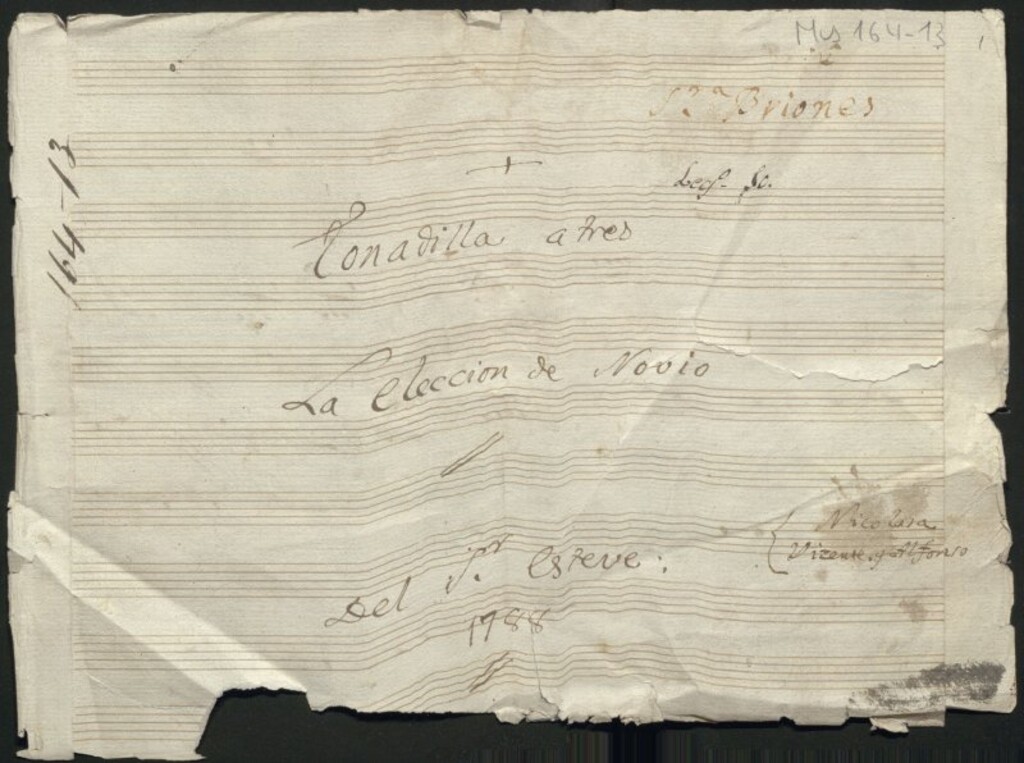 Mus 164-13
1
S.ra Briones
164-13
Leg.º 50.
Tonadilla a tres
La eleccion de Novio
Del S.r Esteve:
1788
Nicolasa
Vizente, y Alfonso